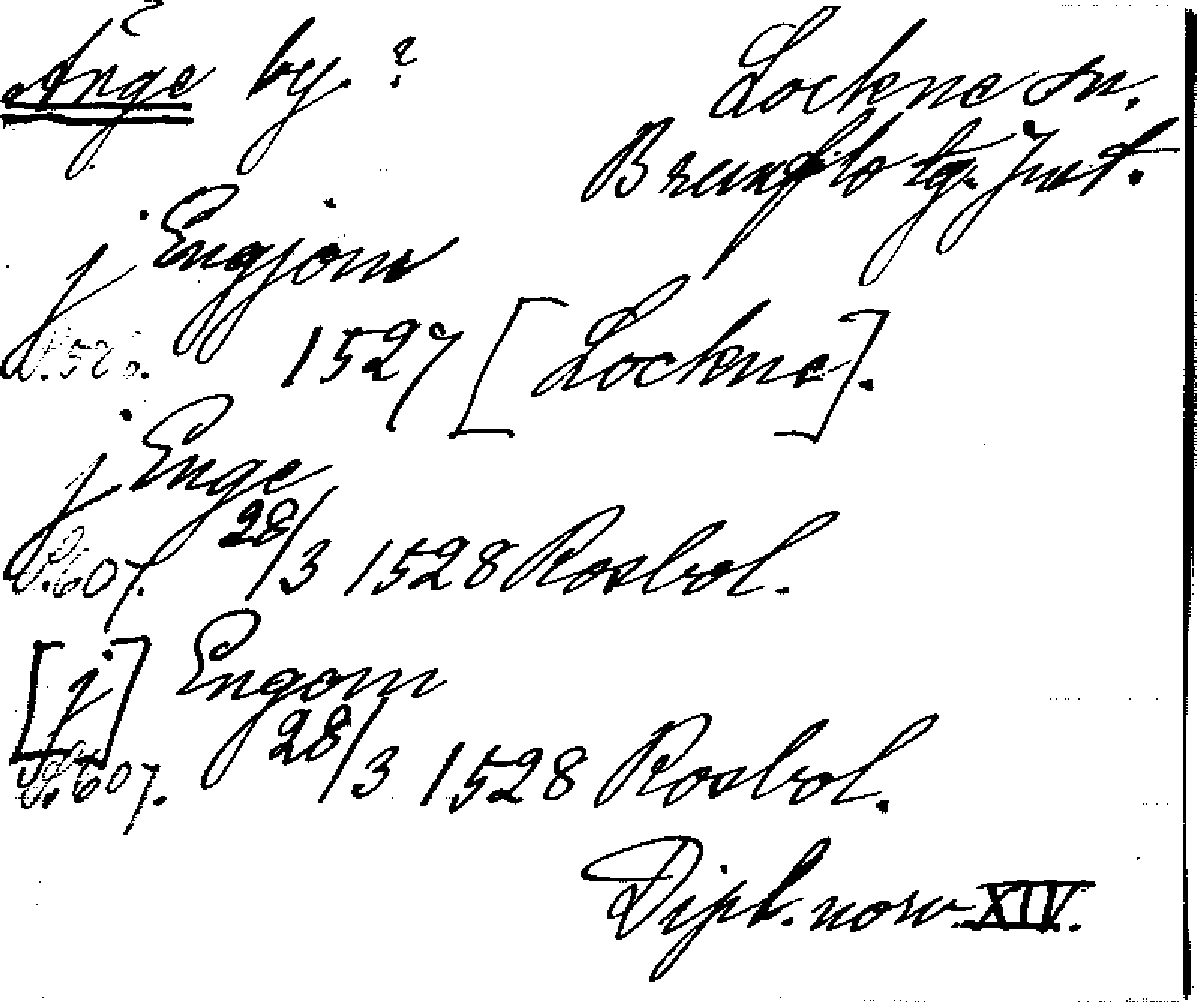 Änge by.?
Lockne sn.
Brunflo tg. Jmt.
j Engjom
S. 576. 1527 [Lockne].
j Enge
S. 607. 28/3 1528 Rosbol.
[j] Engom
S. 607. 28/3 1528 Rosbol.
Dipl. norv. XIV.